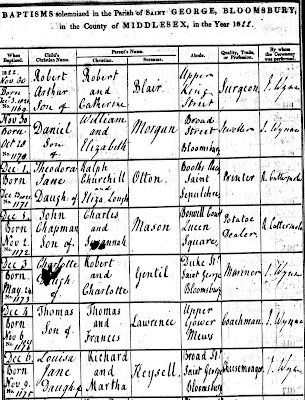 BAPTISMS solemnized in the Parish of SAINT GEORGE, BLOOMSBURY,
in the County of MIDDLESEX, in the Year 1822.
When Baptized. Child's Christian Name. Parent's Name. Christian. Surname. Abode. Quality, Trade, or Profession. By whom the Ceremony was performed.
1822.
Nov 30 Robert Robert Upper
Born Arthur and Blair. King Surgeon. J. Wynne
No. 1169. Son of Catherine Street
Nov 30 William Broad
Born Daniel and Morgan Street Jeweller J. Wynne
Oct 28 Son of Elizabeth Bloomsbury
No. 1170.
Dec 1 Theodora Ralph
Born Jane Churchill Olton. Saint Painter R. Cattermole
Daugh. of and Eliza Sepulchre
No. 1171
Dec 1 John Charles Court Potatoe
Born Chapman and Mason Queen Dealer. R. Cattermole
Nov 2 Son of Square
No. 1172
Dec 3 Charlotte Robert Duke St
Born Daugh. and Gentil Saint George Mariner J. Wynne
May 24 of Charlotte Bloomsbury
No. 1173
Dec 4 Thomas Thomas Upper
Born Son of and Lawrence Gower Coachman. J. Wynne
Nov Frances Mews
No. 1174
Dec 6 Louisa Richard Broad St
Born Jane and Heysell. Saint George Cheesemonger. J. Wynne
Nov 9 Daugh of Martha Bloomsbury
No. 1175